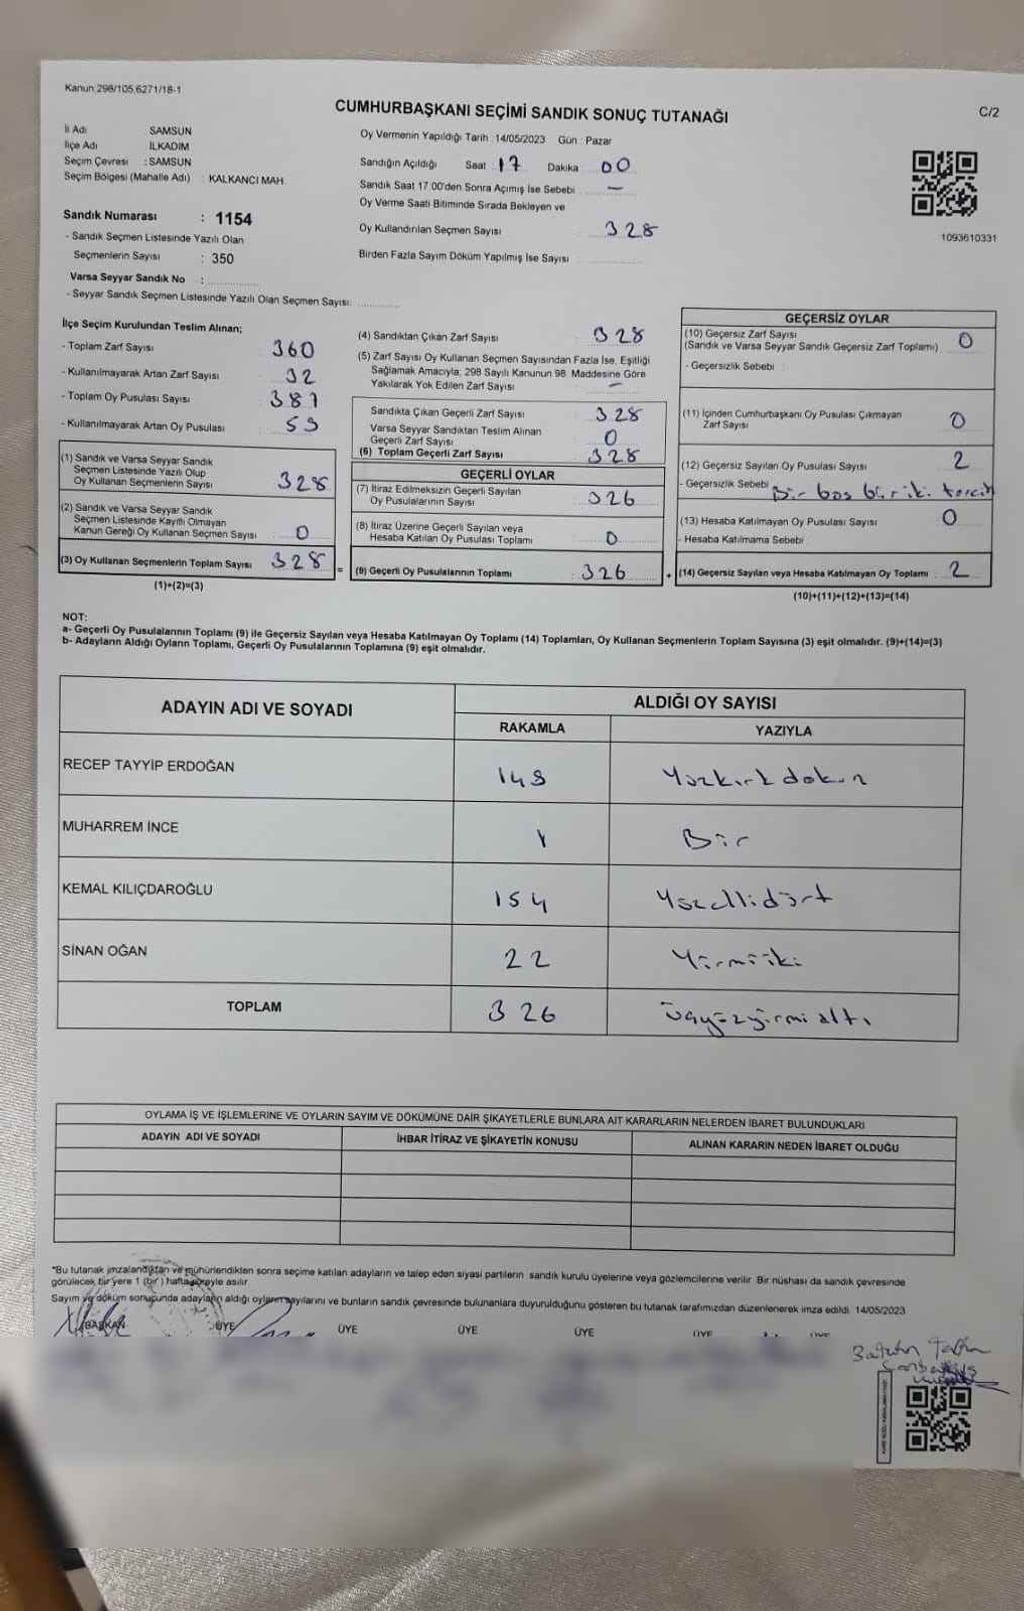 Kanun 298/105,6271/18-1
CUMHURBAŞKANI SEÇİMİ SANDIK SONUÇ TUTANAĞI
C/2
İl Adı SAMSUN
İlçe Adı İLKADIM
Seçim Çevresi : SAMSUN
Seçim Bölgesi (Mahalle Adı) : KALKANCI MAH.
Sandık Numarası : 1154
- Sandık Seçmen Listesinde Yazılı Olan
Seçmenlerin Sayısı : 350
Varsa Seyyar Sandık No :
- Seyyar Sandık Seçmen Listesinde Yazılı Olan Seçmen Sayısı:
Oy Vermenin Yapıldığı Tarih : 14/05/2023 Gün : Pazar
Sandığın Açıldığı Saat 17 Dakika 00
Sandık Saat 17.00'den Sonra Açımış İse Sebebi —
Oy Verme Saati Bitiminde Sırada Bekleyen ve
Oy Kullandırılan Seçmen Sayısı 328
Birden Fazla Sayım Döküm Yapılmış İse Sayısı
1093610331
İlçe Seçim Kurulundan Teslim Alınan;
- Toplam Zarf Sayısı 360
- Kullanılmayarak Artan Zarf Sayısı 32
- Toplam Oy Pusulası Sayısı 381
- Kullanılmayarak Artan Oy Pusulası 53
(1) Sandık ve Varsa Seyyar Sandık
Seçmen Listesinde Yazılı Olup
Oy Kullanan Seçmenlerin Sayısı 328
(2) Sandık ve Varsa Seyyar Sandık
Seçmen Listesinde Kayıtlı Olmayan
Kanun Gereği Oy Kullanan Seçmen Sayısı 0
(3) Oy Kullanan Seçmenlerin Toplam Sayısı 328
(1)+(2)=(3)
(4) Sandıktan Çıkan Zarf Sayısı 328
(5) Zarf Sayısı Oy Kullanan Seçmen Sayısından Fazla İse, Eşitliği
Sağlamak Amacıyla, 298 Sayılı Kanunun 98. Maddesine Göre
Yakılarak Yok Edilen Zarf Sayısı —
Sandıkta Çıkan Geçerli Zarf Sayısı 328
Varsa Seyyar Sandıktan Teslim Alınan
Geçerli Zarf Sayısı 0
(6) Toplam Geçerli Zarf Sayısı 328
GEÇERLİ OYLAR
(7) İtiraz Edilmeksizin Geçerli Sayılan
Oy Pusulalarının Sayısı 326
(8) İtiraz Üzerine Geçerli Sayılan veya
Hesaba Katılan Oy Pusulası Toplamı 0
= (9) Geçerli Oy Pusulalarının Toplamı 326
GEÇERSİZ OYLAR
(10) Geçersiz Zarf Sayısı 0
(Sandık ve Varsa Seyyar Sandık Geçersiz Zarf Toplamı)
- Geçersizlik Sebebi
(11) İçinden Cumhurbaşkanı Oy Pusulası Çıkmayan
Zarf Sayısı 0
(12) Geçersiz Sayılan Oy Pusulası Sayısı 2
- Geçersizlik Sebebi Bir boş bir iki tercih
(13) Hesaba Katılmayan Oy Pusulası Sayısı 0
- Hesaba Katılmama Sebebi
+ (14) Geçersiz Sayılan veya Hesaba Katılmayan Oy Toplamı 2
(10)+(11)+(12)+(13)=(14)
NOT:
a- Geçerli Oy Pusulalarının Toplamı (9) ile Geçersiz Sayılan veya Hesaba Katılmayan Oy Toplamı (14) Toplamları, Oy Kullanan Seçmenlerin Toplam Sayısına (3) eşit olmalıdır. (9)+(14)=(3)
b- Adayların Aldığı Oyların Toplamı, Geçerli Oy Pusulalarının Toplamına (9) eşit olmalıdır.
ADAYIN ADI VE SOYADI
ALDIĞI OY SAYISI
RAKAMLA YAZIYLA
RECEP TAYYİP ERDOĞAN 149 Yüzkırkdokuz
MUHARREM İNCE 1 Bir
KEMAL KILIÇDAROĞLU 154 Yüzellidört
SİNAN OĞAN 22 Yirmiiki
TOPLAM 326 Üçyüzyirmialtı
OYLAMA İŞ VE İŞLEMLERİNE VE OYLARIN SAYIM VE DÖKÜMÜNE DAİR ŞİKAYETLERLE BUNLARA AİT KARARLARIN NELERDEN İBARET BULUNDUKLARI
ADAYIN ADI VE SOYADI İHBAR İTİRAZ VE ŞİKAYETİN KONUSU ALINAN KARARIN NEDEN İBARET OLDUĞU
"Bu tutanak imzalandıktan ve mühürlendikten sonra seçime katılan adayların ve talep eden siyasi partilerin sandık kurulu üyelerine veya gözlemcilerine verilir. Bir nüshası da sandık çevresinde
görülecek bir yere 1 (bir) hafta süreyle asılır.
Sayım ve döküm sonuçunda adayların aldığı oyların sayılarını ve bunların sandık çevresinde bulunanlara duyurulduğunu gösteren bu tutanak tarafımızdan düzenlenerek imza edildi. 14/05/2023
BAŞKAN ÜYE ÜYE ÜYE ÜYE ÜYE ÜYE